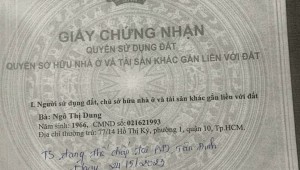 GIẤY CHỨNG NHẬN
QUYỀN SỬ DỤNG ĐẤT
QUYỀN SỞ HỮU NHÀ Ở VÀ TÀI SẢN KHÁC GẮN LIỀN VỚI ĐẤT
I. Người sử dụng đất, chủ sở hữu nhà ở và tài sản khác gắn liền với đất
Bà: Ngô Thị Dung
Năm sinh: 1966, CMND số: 021621993
Địa chỉ thường trú: 77/14 Hồ Thị Kỷ, phường 1, quận 10, Tp.HCM.
TS đang thế chấp tại Tân Định